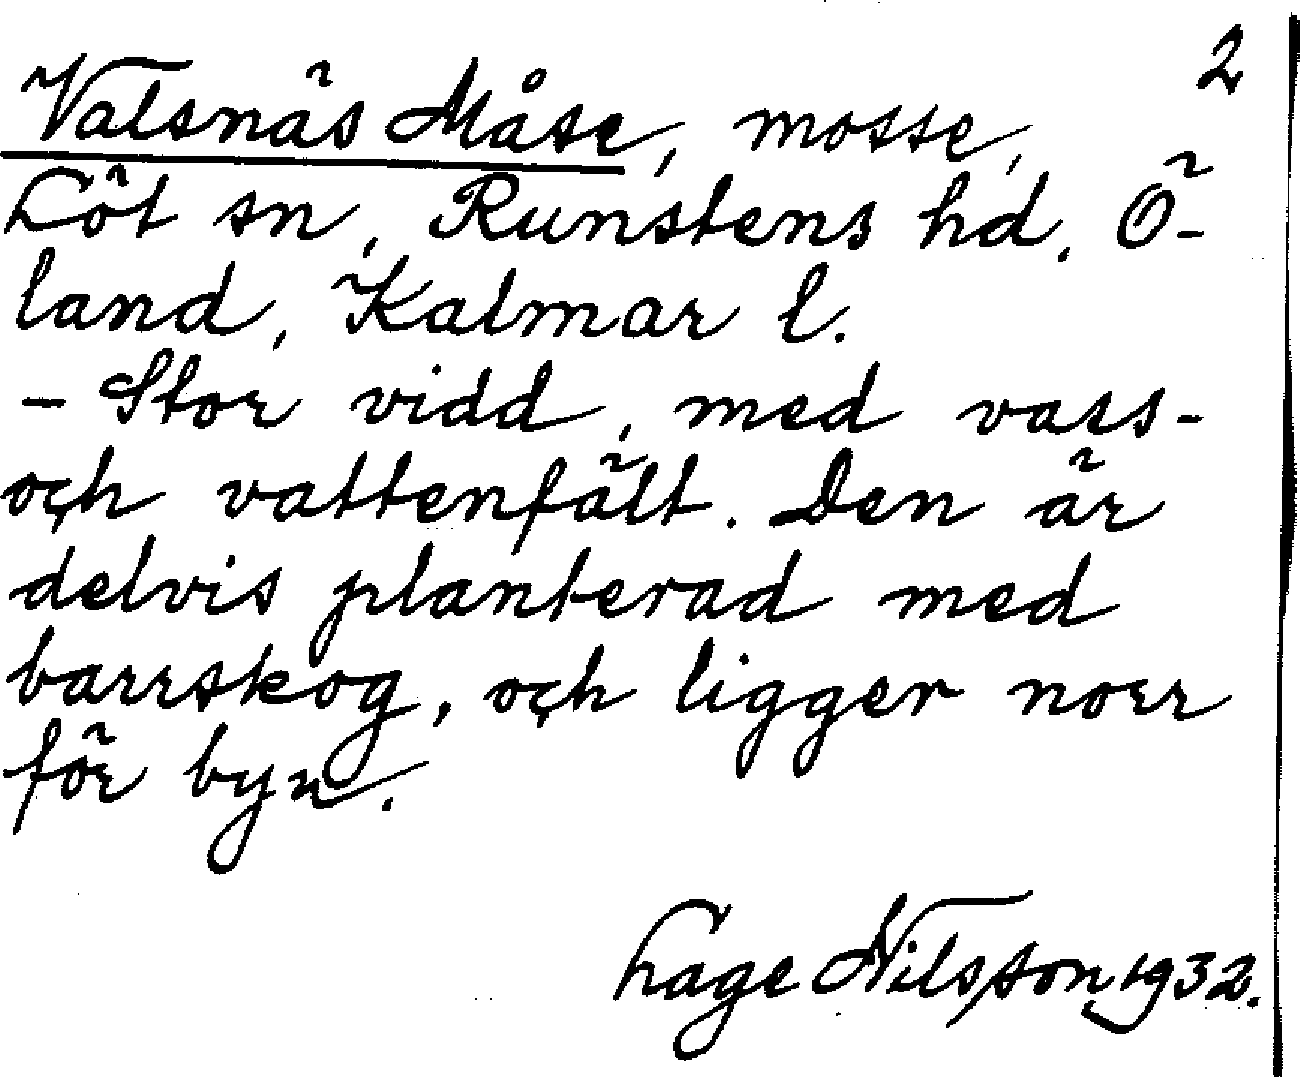 2
Valsnäs Måse, mosse,
Löt sn, Runstens hd. Ö-
land, Kalmar l.
- Stor vidd, med vass-
och vattenfält. Den är
delvis planterad med
barrskog, och ligger norr
för byn.
Lage Nilsson 1932.